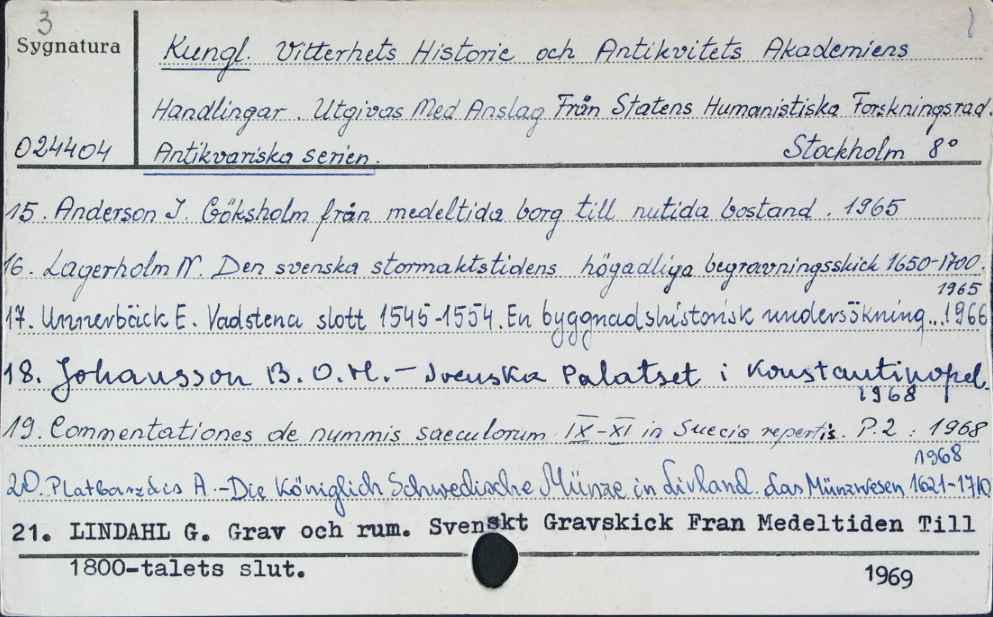 3
Sygnatura
Kungl. Vitterhets Historie och Antikvitets Akademiens
Handlingar. Utgivas Med Anslag Från Statens Humanistiska Forskningsrad.
024404 Antikvariska serien. Stockholm 8°
15. Anderson I. Göksholm från medeltida borg till nutida bostand. 1965
16. Lagerholm N. Den svenska stormaktstidens högadliga begravningsskick 1650-1700.
1965
17. Unnerbäck E. Vadstena slott 1545-1554. En byggnadshistorisk undersökning...1966
18. Johansson B.O.H. - Svenska Palatset i Konstantinopel.
1968
19. Commentationes de nummis saeculorum IX-XI in Suecia repertis. P.2: 1968
1968
20. Platbarzdis A. - Die Königlich Schwedische Münze in Livland. Das Münzwesen 1621-1710
21. LINDAHL G. Grav och rum. Svenskt Gravskick Fran Medeltiden Till
1800-talets slut. 1969